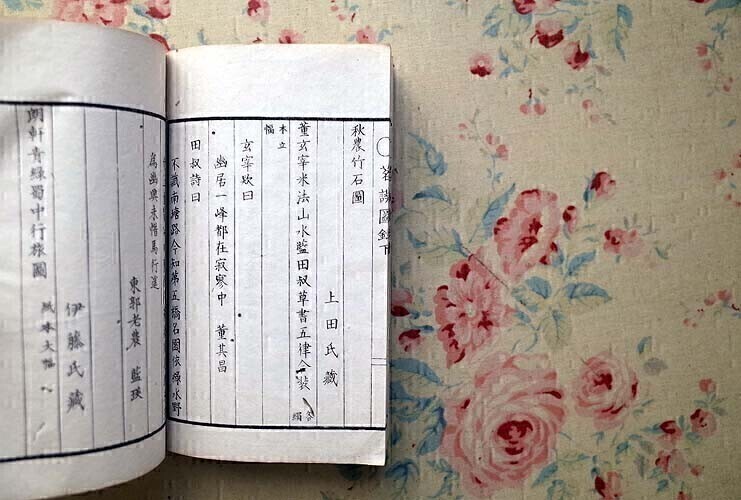 茗讌圖錄下
秋農竹石圖
上田氏藏
董玄宰米法山水藍田叔草書五律合裝
各絹
本立幅
玄宰欵曰
幽居一峰都在寂寥中 董其昌
田叔詩曰
不識南塘路今知第五橋名園依綠水野
為幽興未惜馬行遙
東郭老農 藍瑛
伊藤氏藏
朗軒青綠蜀中行旅圖
紙本大幅